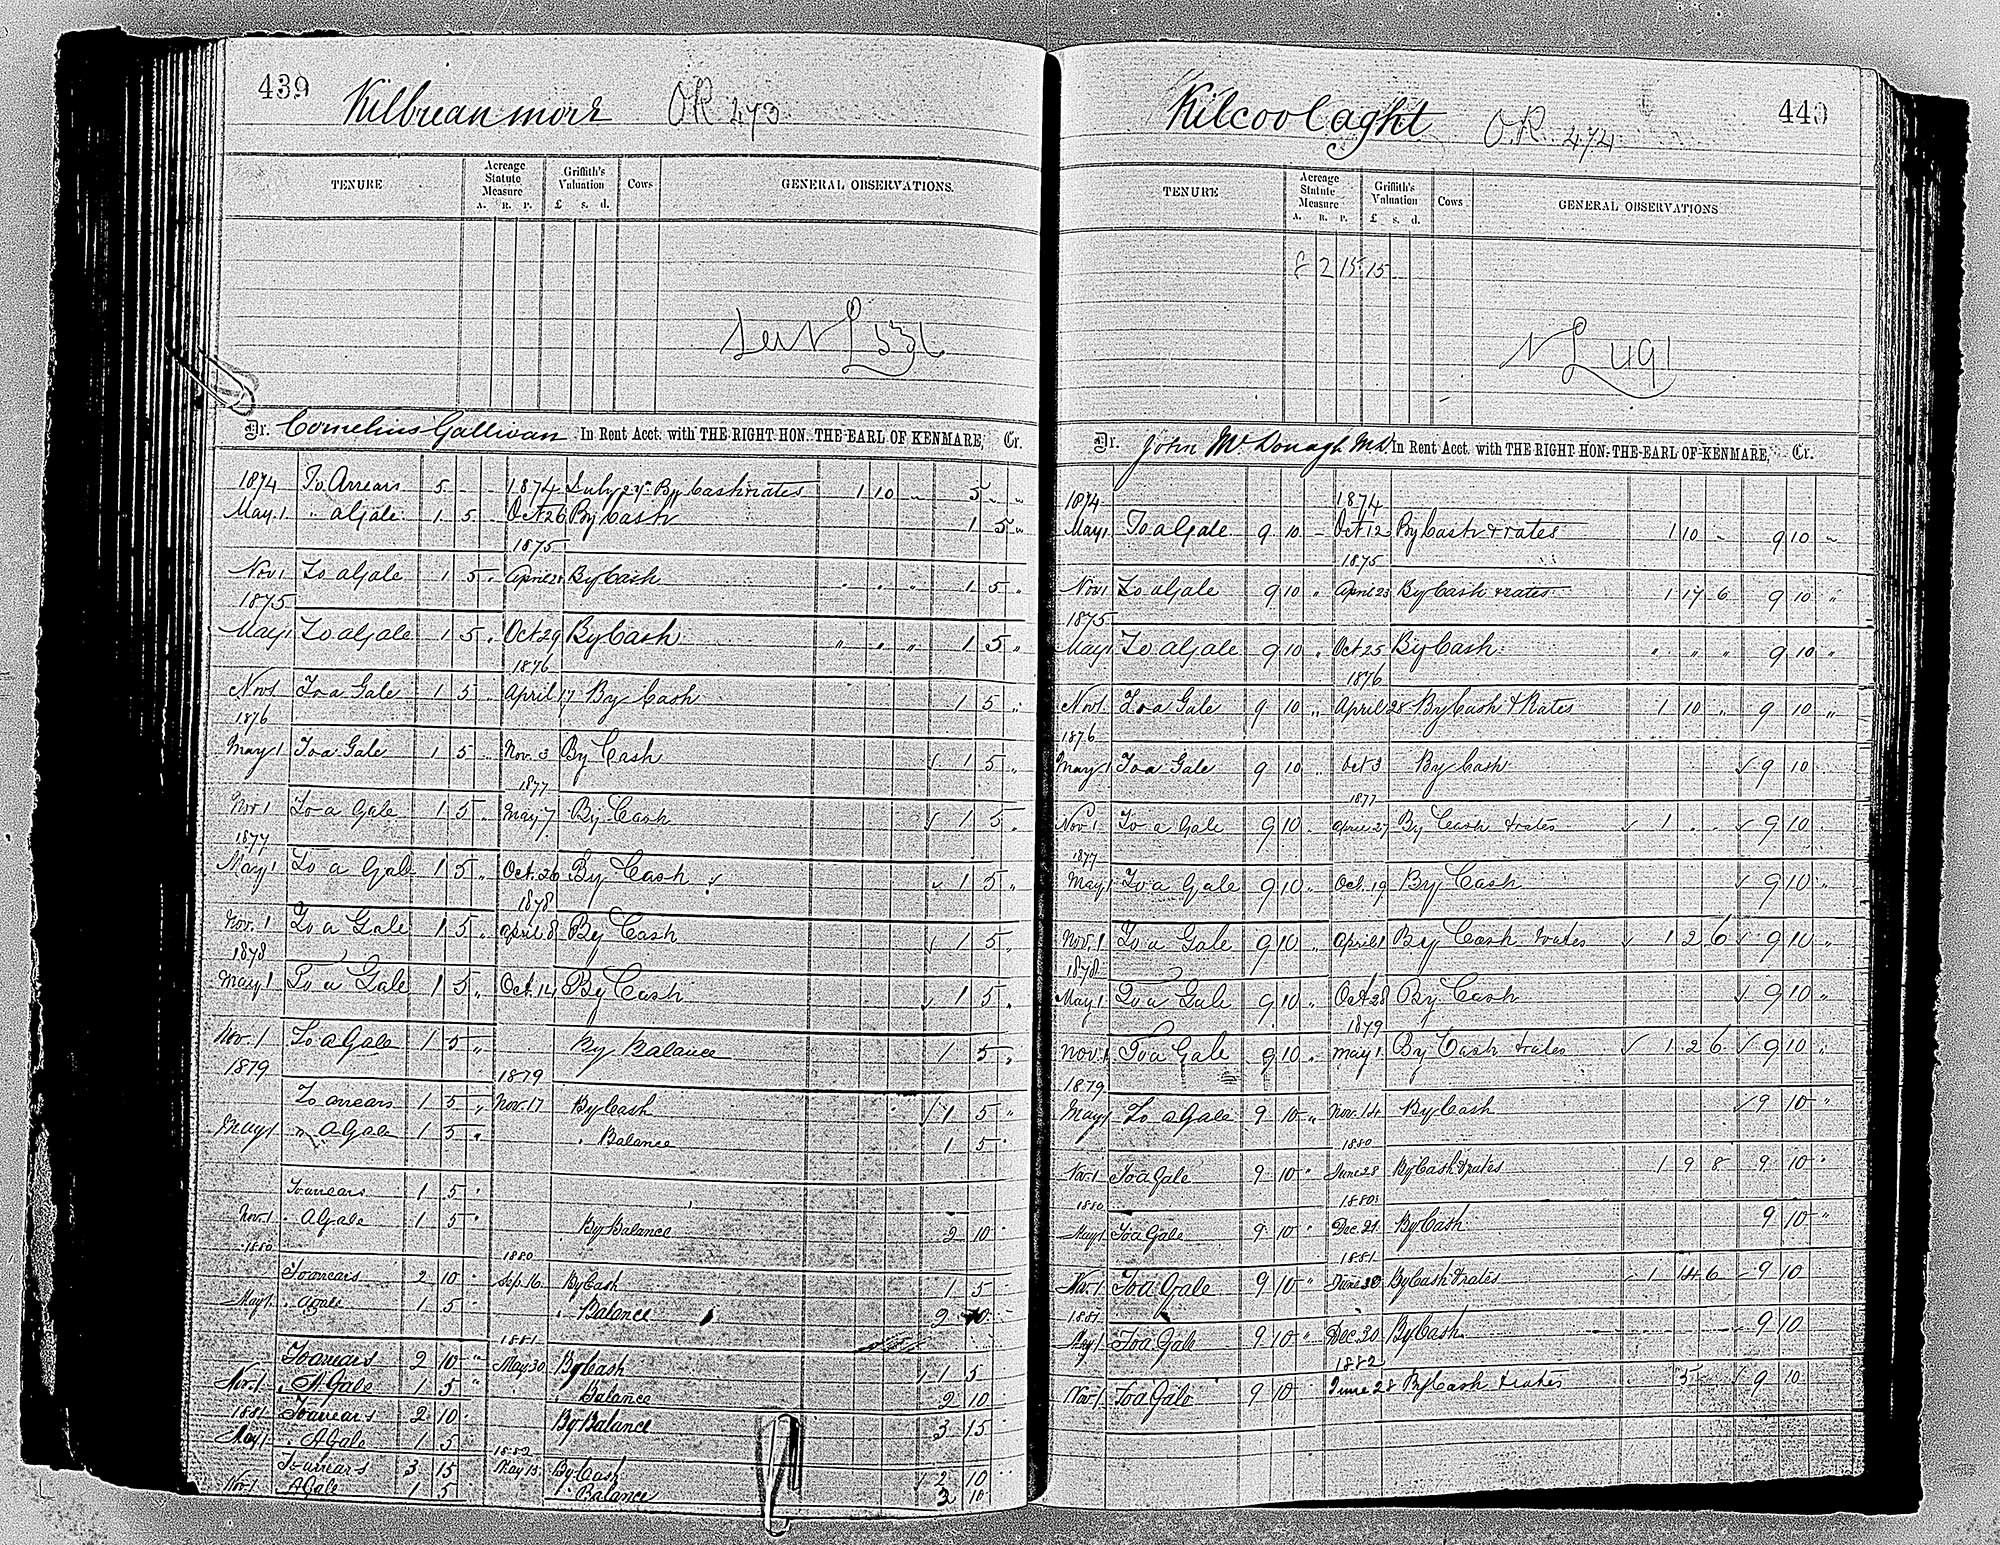 439
Kilbrean more OR 473
TENURE Acreage Statute Measure A. R. P. Griffith's Valuation £ s. d. Cows GENERAL OBSERVATIONS.
Dr. Cornelius Gallivan In Rent Acct. with THE RIGHT HON. THE EARL OF KENMARE, Cr.
1874 To Arrears 5 - - 1874 July By Cash & rates 1 10 " 5 " "
May 1 " a Gale 1 5 Oct 26 By Cash 1 5 "
1875
Nov 1 To a Gale 1 5 " April By Cash " " " 1 5 "
1875
May 1 To a Gale 1 5 " Oct 29 By Cash " " " 1 5 "
1876
Nov 1 To a Gale 1 5 " April 17 By Cash 1 5 "
1876
May 1 To a Gale 1 5 " Nov. 3 By Cash ✓ 1 5 "
1877
Nov 1 To a Gale 1 5 " May 7 By Cash ✓ 1 5 "
1877
May 1 To a Gale 1 5 " Oct. 26 By Cash ✓ ✓ 1 5 "
1878
Nov. 1 To a Gale 1 5 " April 8 By Cash ✓ 1 5 "
1878
May 1 To a Gale 1 5 " Oct. 14 By Cash ✓ 1 5 "
Nov. 1 To a Gale 1 5 " By Balance 1 5 "
1879 1879
To arrears 1 5 " Nov. 17 By Cash ✓ 1 5 "
May 1 " a Gale 1 5 " " Balance 1 5 "
To arrears 1 5 "
Nov. 1 " A Gale 1 5 " By Balance 2 10 "
1880 1880
To arrears 2 10 " Sep. 16 By Cash 1 5
May 1 " a Gale 1 5 " " Balance 2 10 "
1881
To arrears 2 10 " May 30 By Cash ✓ 1 5
Nov. 1 " A Gale 1 5 " " Balance 2 10
1881 To arrears 2 10 " By Balance 3 15
May 1 " A Gale 1 5
1882
To arrears 3 15 May 15 By Cash ✓ 2 10 "
Nov. 1 " A Gale 1 5 " Balance 2 10
440
Kilcoolaght O.R. 474
TENURE Acreage Statute Measure A. R. P. Griffith's Valuation £ s. d. Cows GENERAL OBSERVATIONS
8 2 15 15
N L 491
Dr. John McDonagh M.D. In Rent Acct. with THE RIGHT HON. THE EARL OF KENMARE, Cr.
1874 1874
May 1 To a Gale 9 10 - Oct 12 By Cash & rates 1 10 - 9 10 "
1875
Nov 1 To a Gale 9 10 " April 23 By Cash & rates 1 17 6 9 10 "
1875
May 1 To a Gale 9 10 " Oct 25 By Cash " " " 9 10 "
1876
Nov 1 To a Gale 9 10 " April 28 By Cash & Rates 1 10 " 9 10 "
1876
May 1 To a Gale 9 10 " Oct 3 By Cash ✓ 9 10
1877
Nov 1 To a Gale 9 10 " April 27 By Cash & rates ✓ 1 " " ✓ 9 10 "
1877
May 1 To a Gale 9 10 " Oct. 19 By Cash ✓ 9 10 "
Nov. 1 To a Gale 9 10 " April 1 By Cash & rates ✓ 1 2 6 ✓ 9 10 "
1878
May 1 To a Gale 9 10 " Oct. 28 By Cash ✓ 9 10 "
1879
Nov. 1 To a Gale 9 10 " May 1 By Cash & rates ✓ 1 2 6 ✓ 9 10 "
1879
May 1 To a Gale 9 10 " Nov. 14 By Cash ✓ 9 10 "
1880
Nov. 1 To a Gale 9 10 " June 28 By Cash & rates 1 9 8 9 10 "
1880 1880
May 1 To a Gale 9 10 " Dec. 21 By Cash 9 10 "
1881
Nov. 1 To a Gale 9 10 " June 20 By Cash & rates ✓ 1 14 6 ✓ 9 10
1881
May 1 To a Gale 9 10 " Dec. 30 By Cash 9 10
1882
Nov. 1 To a Gale 9 10 June 28 By Cash & rates 5 ✓ 9 10